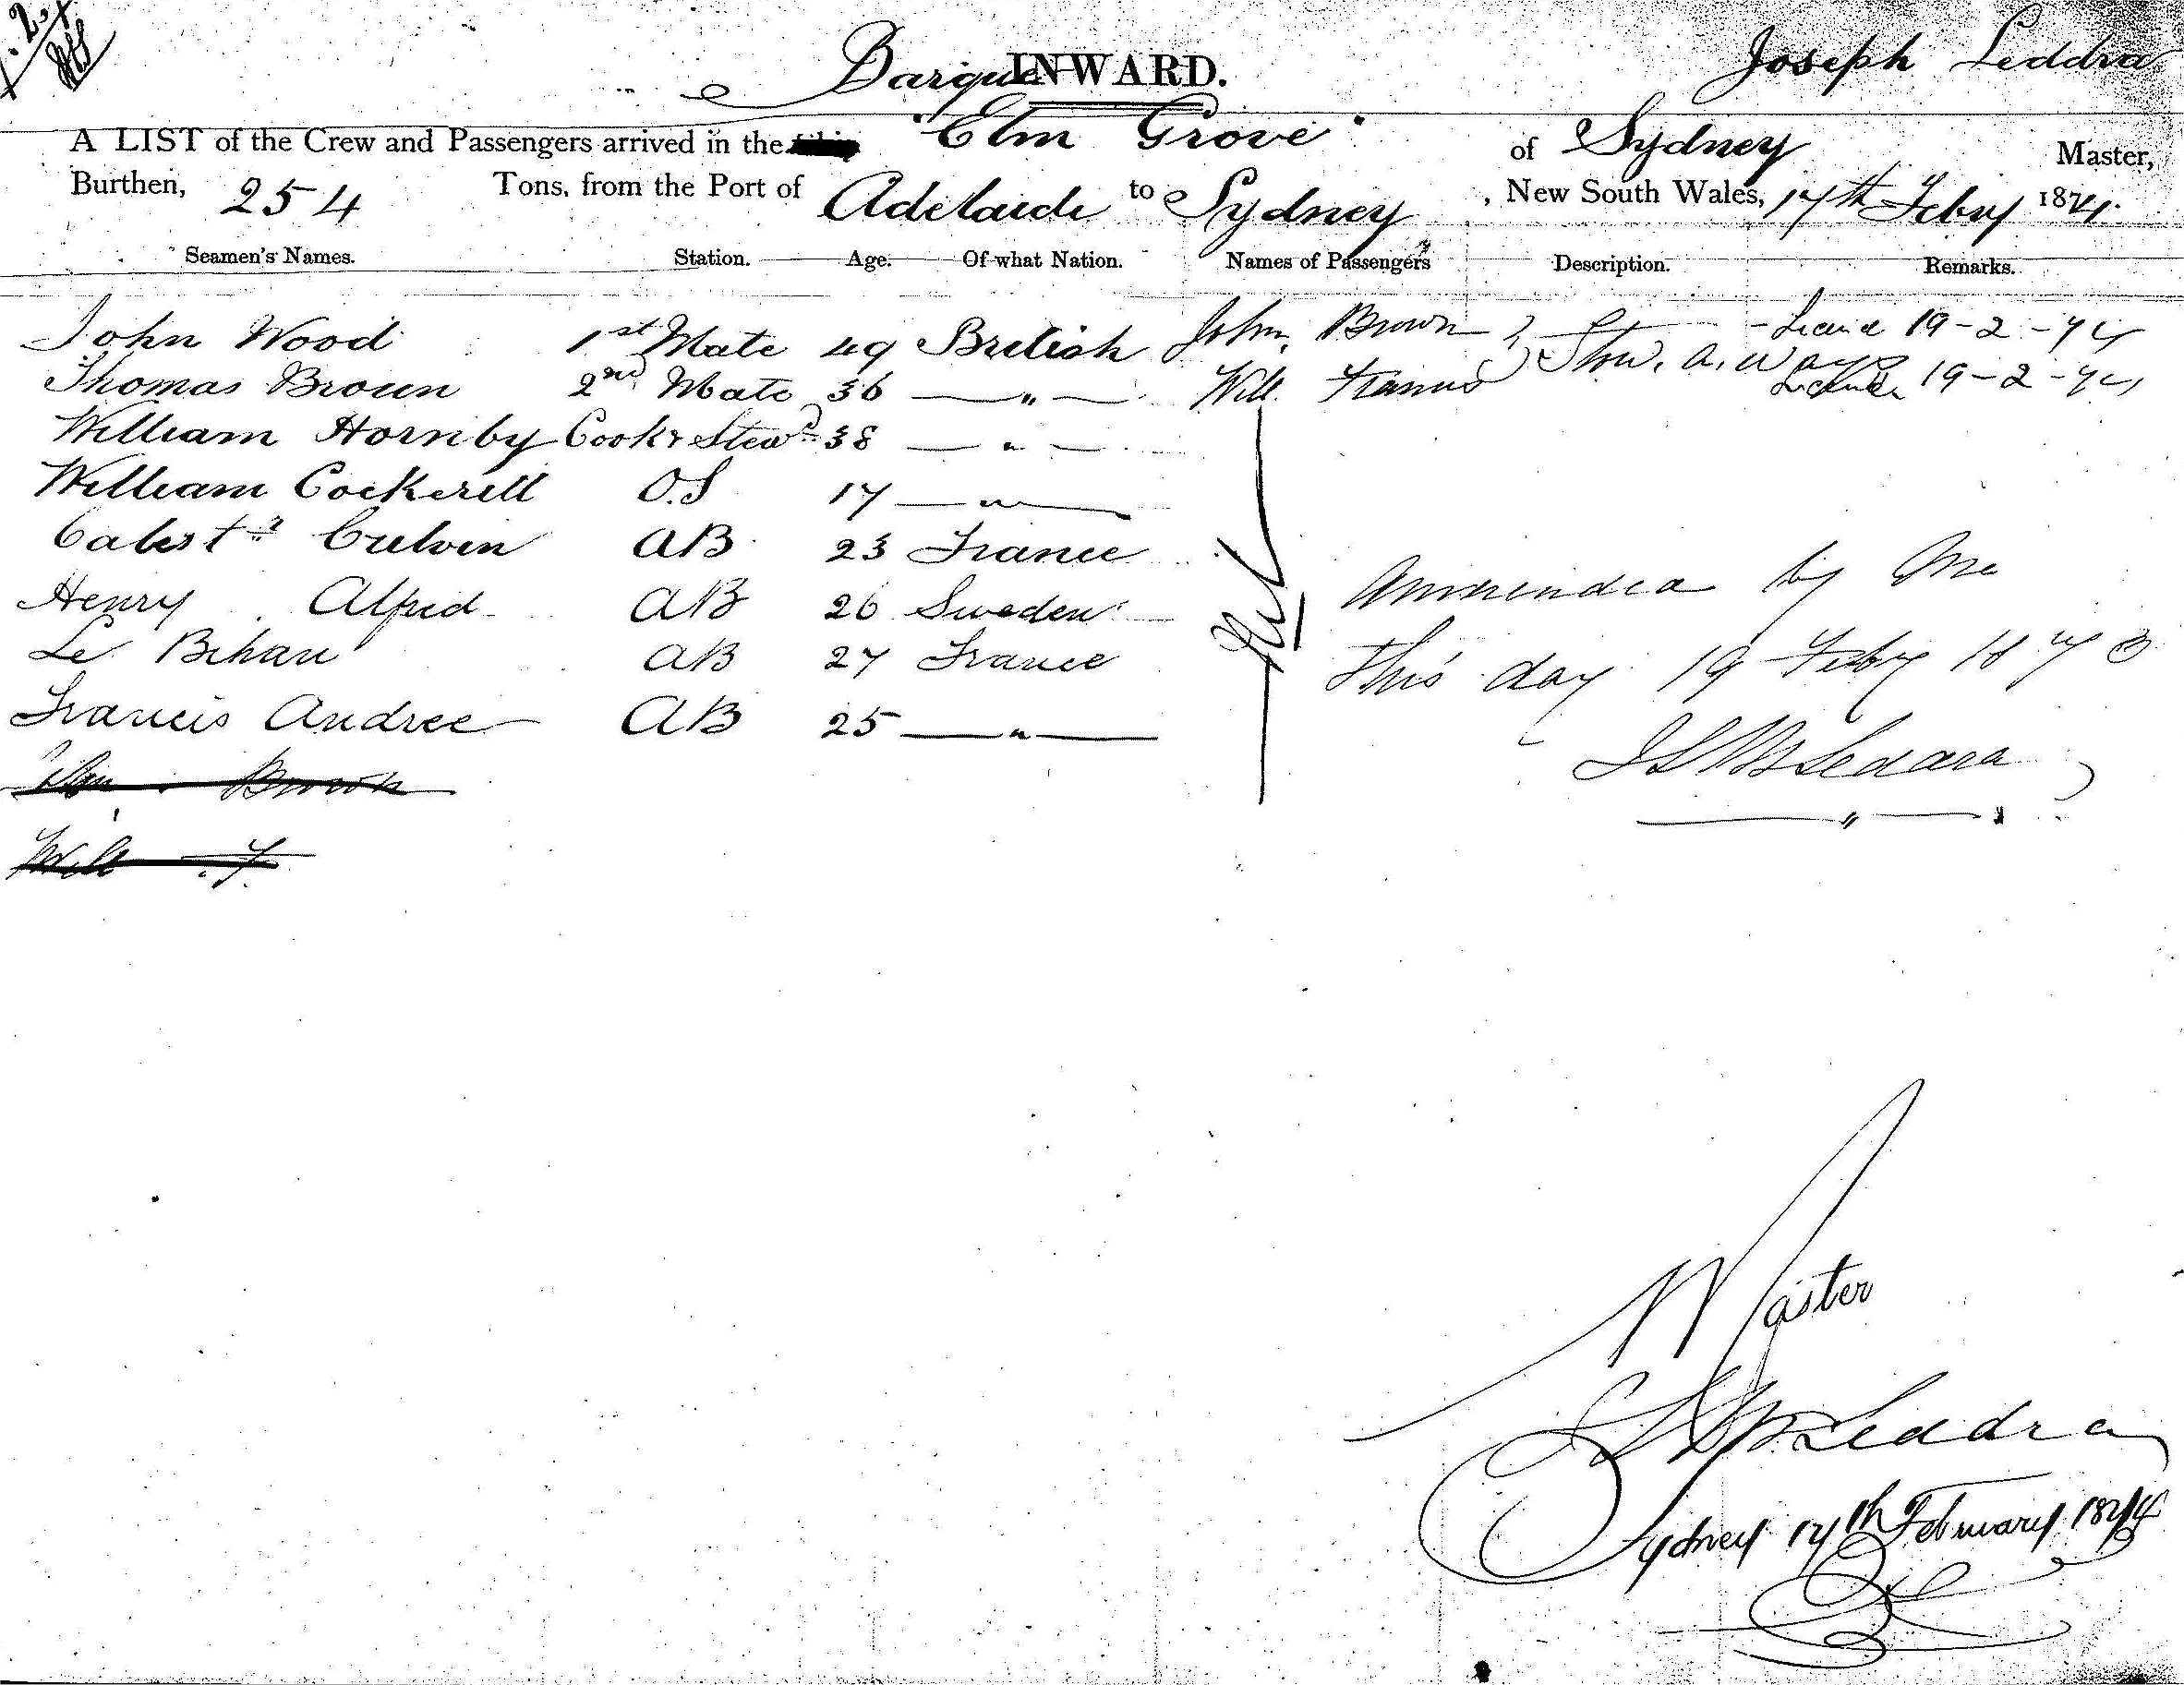 Barque INWARD. Joseph Leddra
A LIST of the Crew and Passengers arrived in the ship "Elm Grove" of Sydney Master,
Burthen, 254 Tons, from the Port of Adelaide to Sydney, New South Wales, 17th Feby 1874.
Seamen's Names. Station. Age. Of what Nation. Names of Passengers Description. Remarks.
John Wood 1st Mate 49 British John Brown 19-2-74
Thomas Broun 2nd Mate 36 — " — Will Francis Stow. a. way 19-2-74
William Hornby Cook & Stewd 38 — " —
William Cockerill O.S 17 — " —
Culvin AB 23 France
Henry Alfred AB 26 Sweden
Le Bihan AB 27 France
Francis Andree AB 25 — " —
Brown
Will F
Ammended by Me
This day 19 Feby 187
Leddra
Master
Leddra
Sydney 17th February 1874